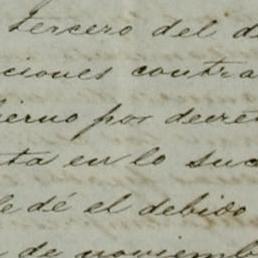 tercero del d
ciones contra
bierno por decre
ta en lo suc
le dé el debido
de noviemb